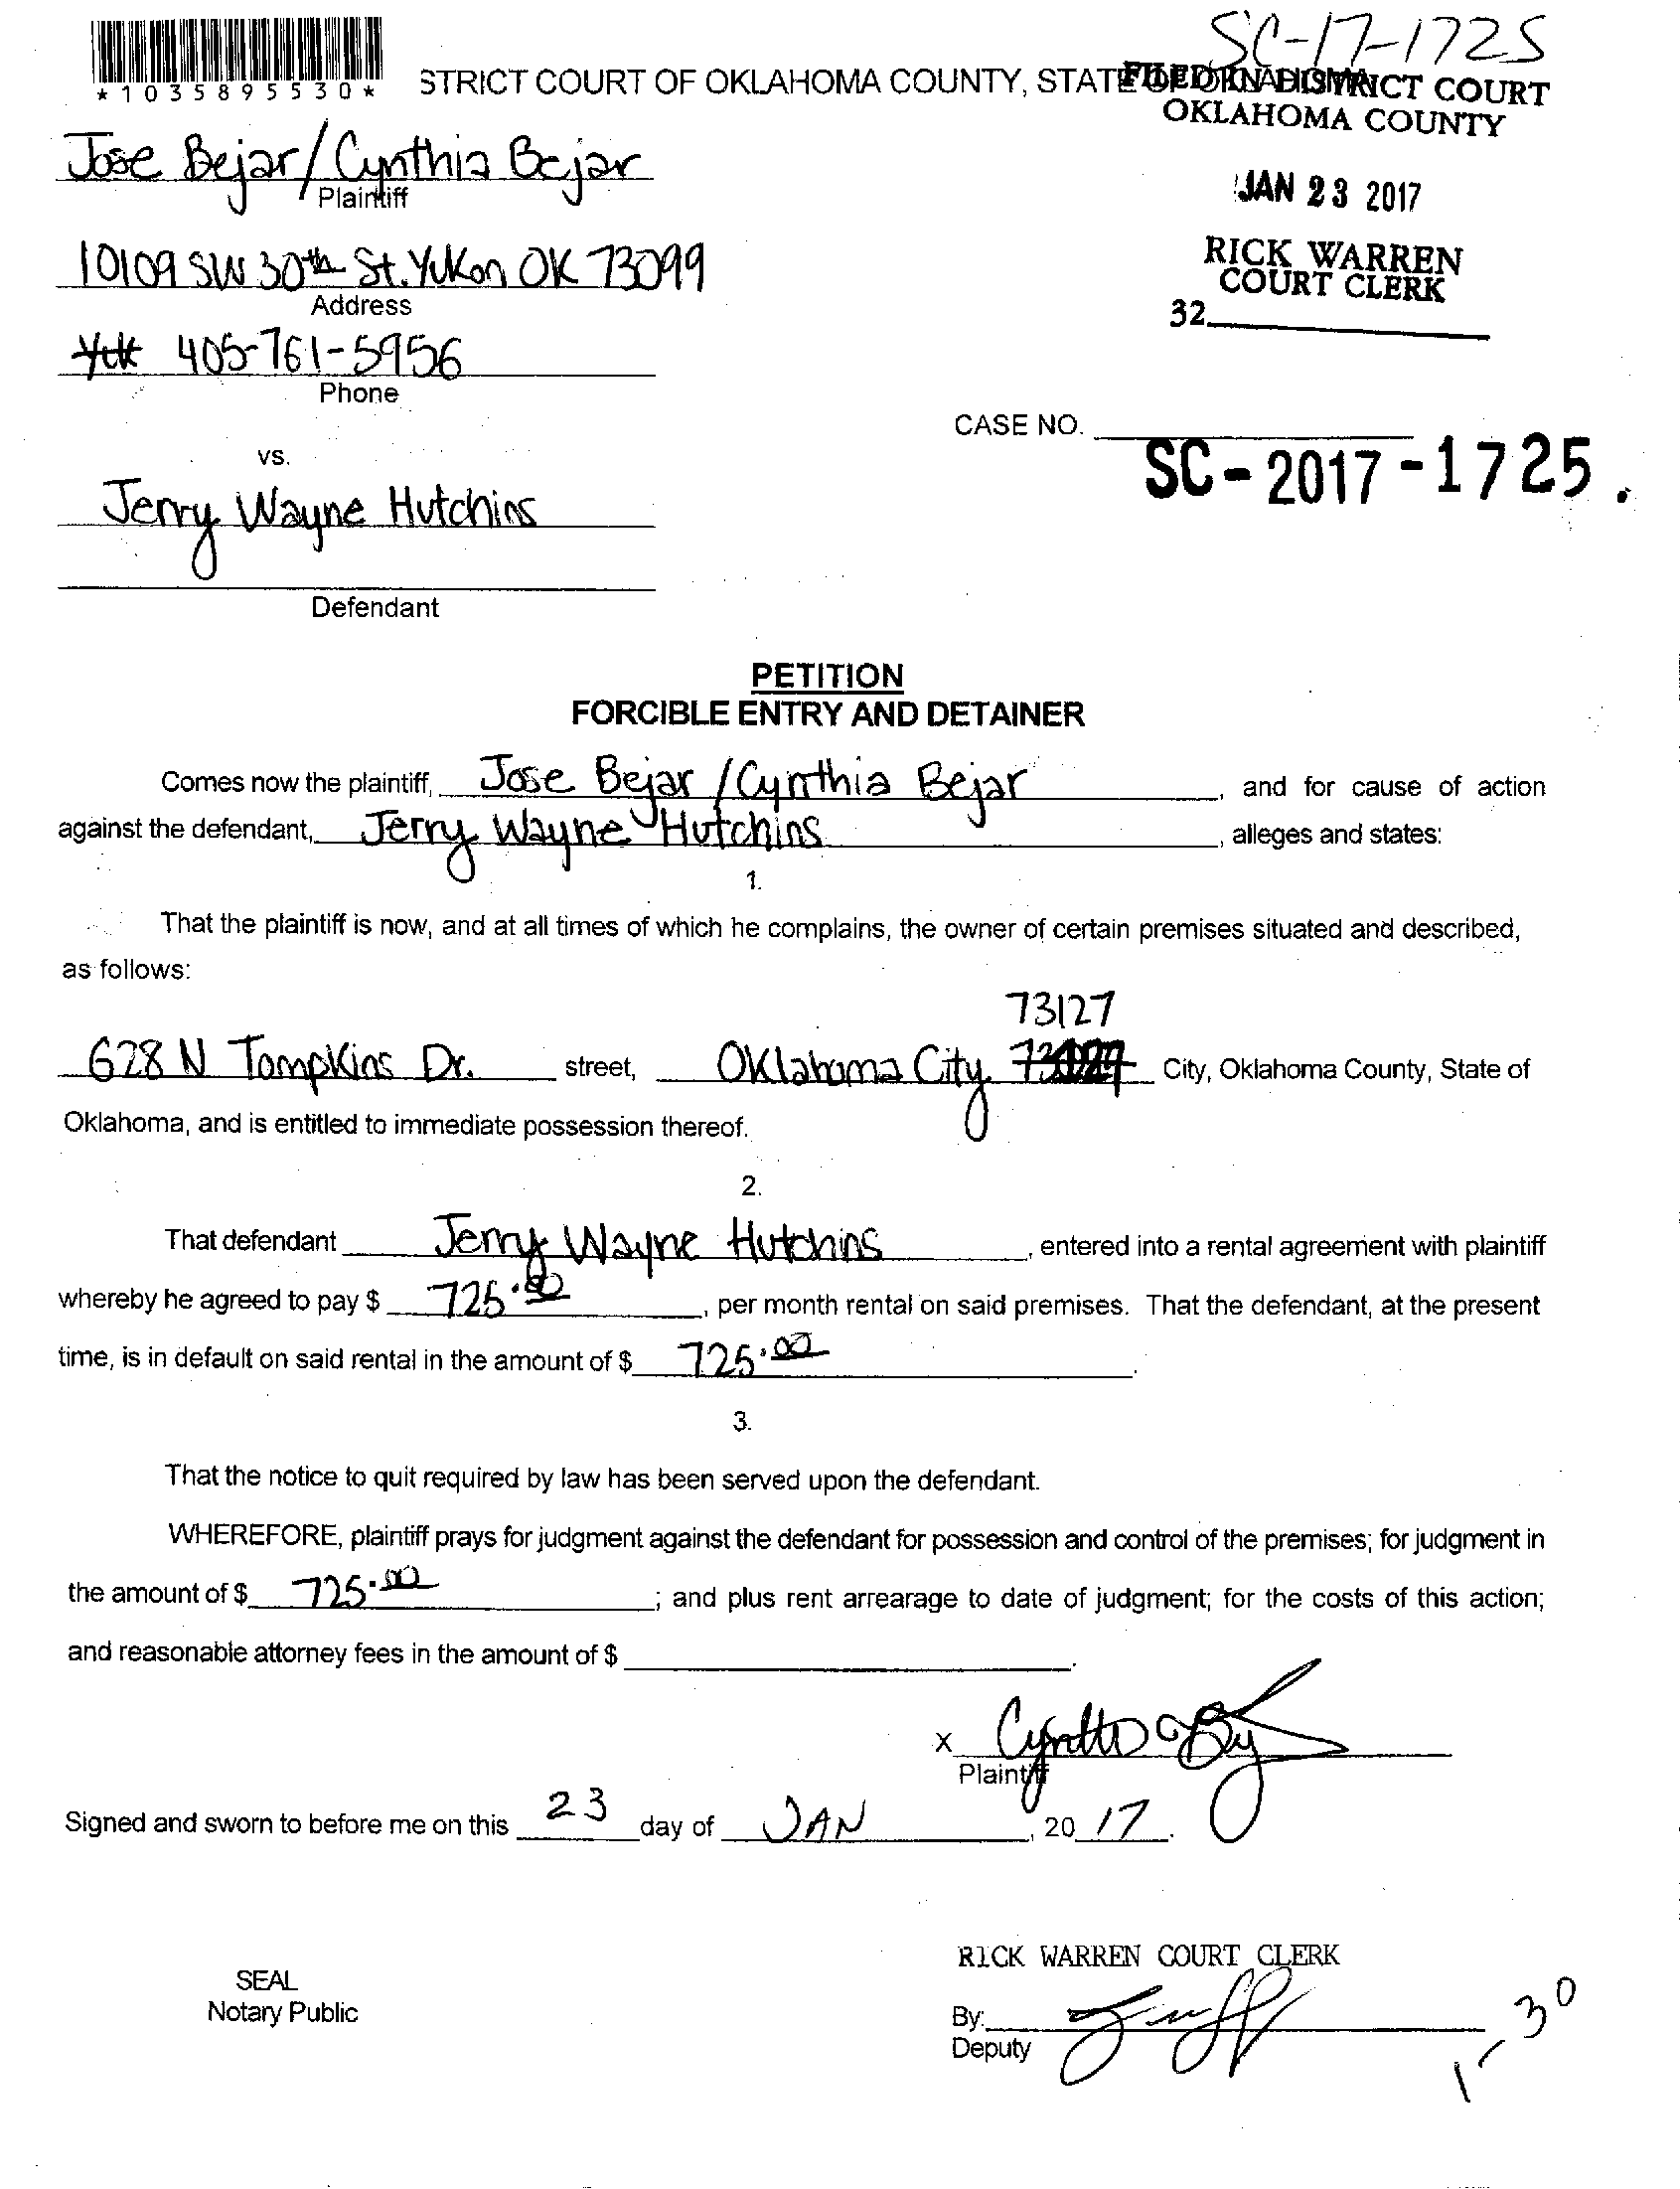 SC-17-1725
*1035895530*
STRICT COURT OF OKLAHOMA COUNTY, STATE OF OKLAHOMA
FILED IN DISTRICT COURT
OKLAHOMA COUNTY
Jose Bejar/Cynthia Bejar
Plaintiff
JAN 23 2017
10109 SW 30th St. Yukon OK 73099
Address
RICK WARREN
COURT CLERK
32
405-761-5956
Phone
CASE NO.
SC-2017-1725.
vs.
Jerry Wayne Hutchins
Defendant
PETITION
FORCIBLE ENTRY AND DETAINER
Comes now the plaintiff, Jose Bejar /Cynthia Bejar, and for cause of action
against the defendant, Jerry Wayne Hutchins, alleges and states:
1.
That the plaintiff is now, and at all times of which he complains, the owner of certain premises situated and described,
as follows:
73127
628 N Tompkins Dr. street, Oklahoma City City, Oklahoma County, State of
Oklahoma, and is entitled to immediate possession thereof.
2.
That defendant Jerry Wayne Hutchins, entered into a rental agreement with plaintiff
whereby he agreed to pay $ 725.00, per month rental on said premises. That the defendant, at the present
time, is in default on said rental in the amount of $ 725.00.
3.
That the notice to quit required by law has been served upon the defendant.
WHEREFORE, plaintiff prays for judgment against the defendant for possession and control of the premises; for judgment in
the amount of $ 725.00; and plus rent arrearage to date of judgment; for the costs of this action;
and reasonable attorney fees in the amount of $ .
x
Plaintiff
Signed and sworn to before me on this 23 day of JAN, 20 17.
RICK WARREN COURT CLERK
SEAL
Notary Public
By:
Deputy
1-30